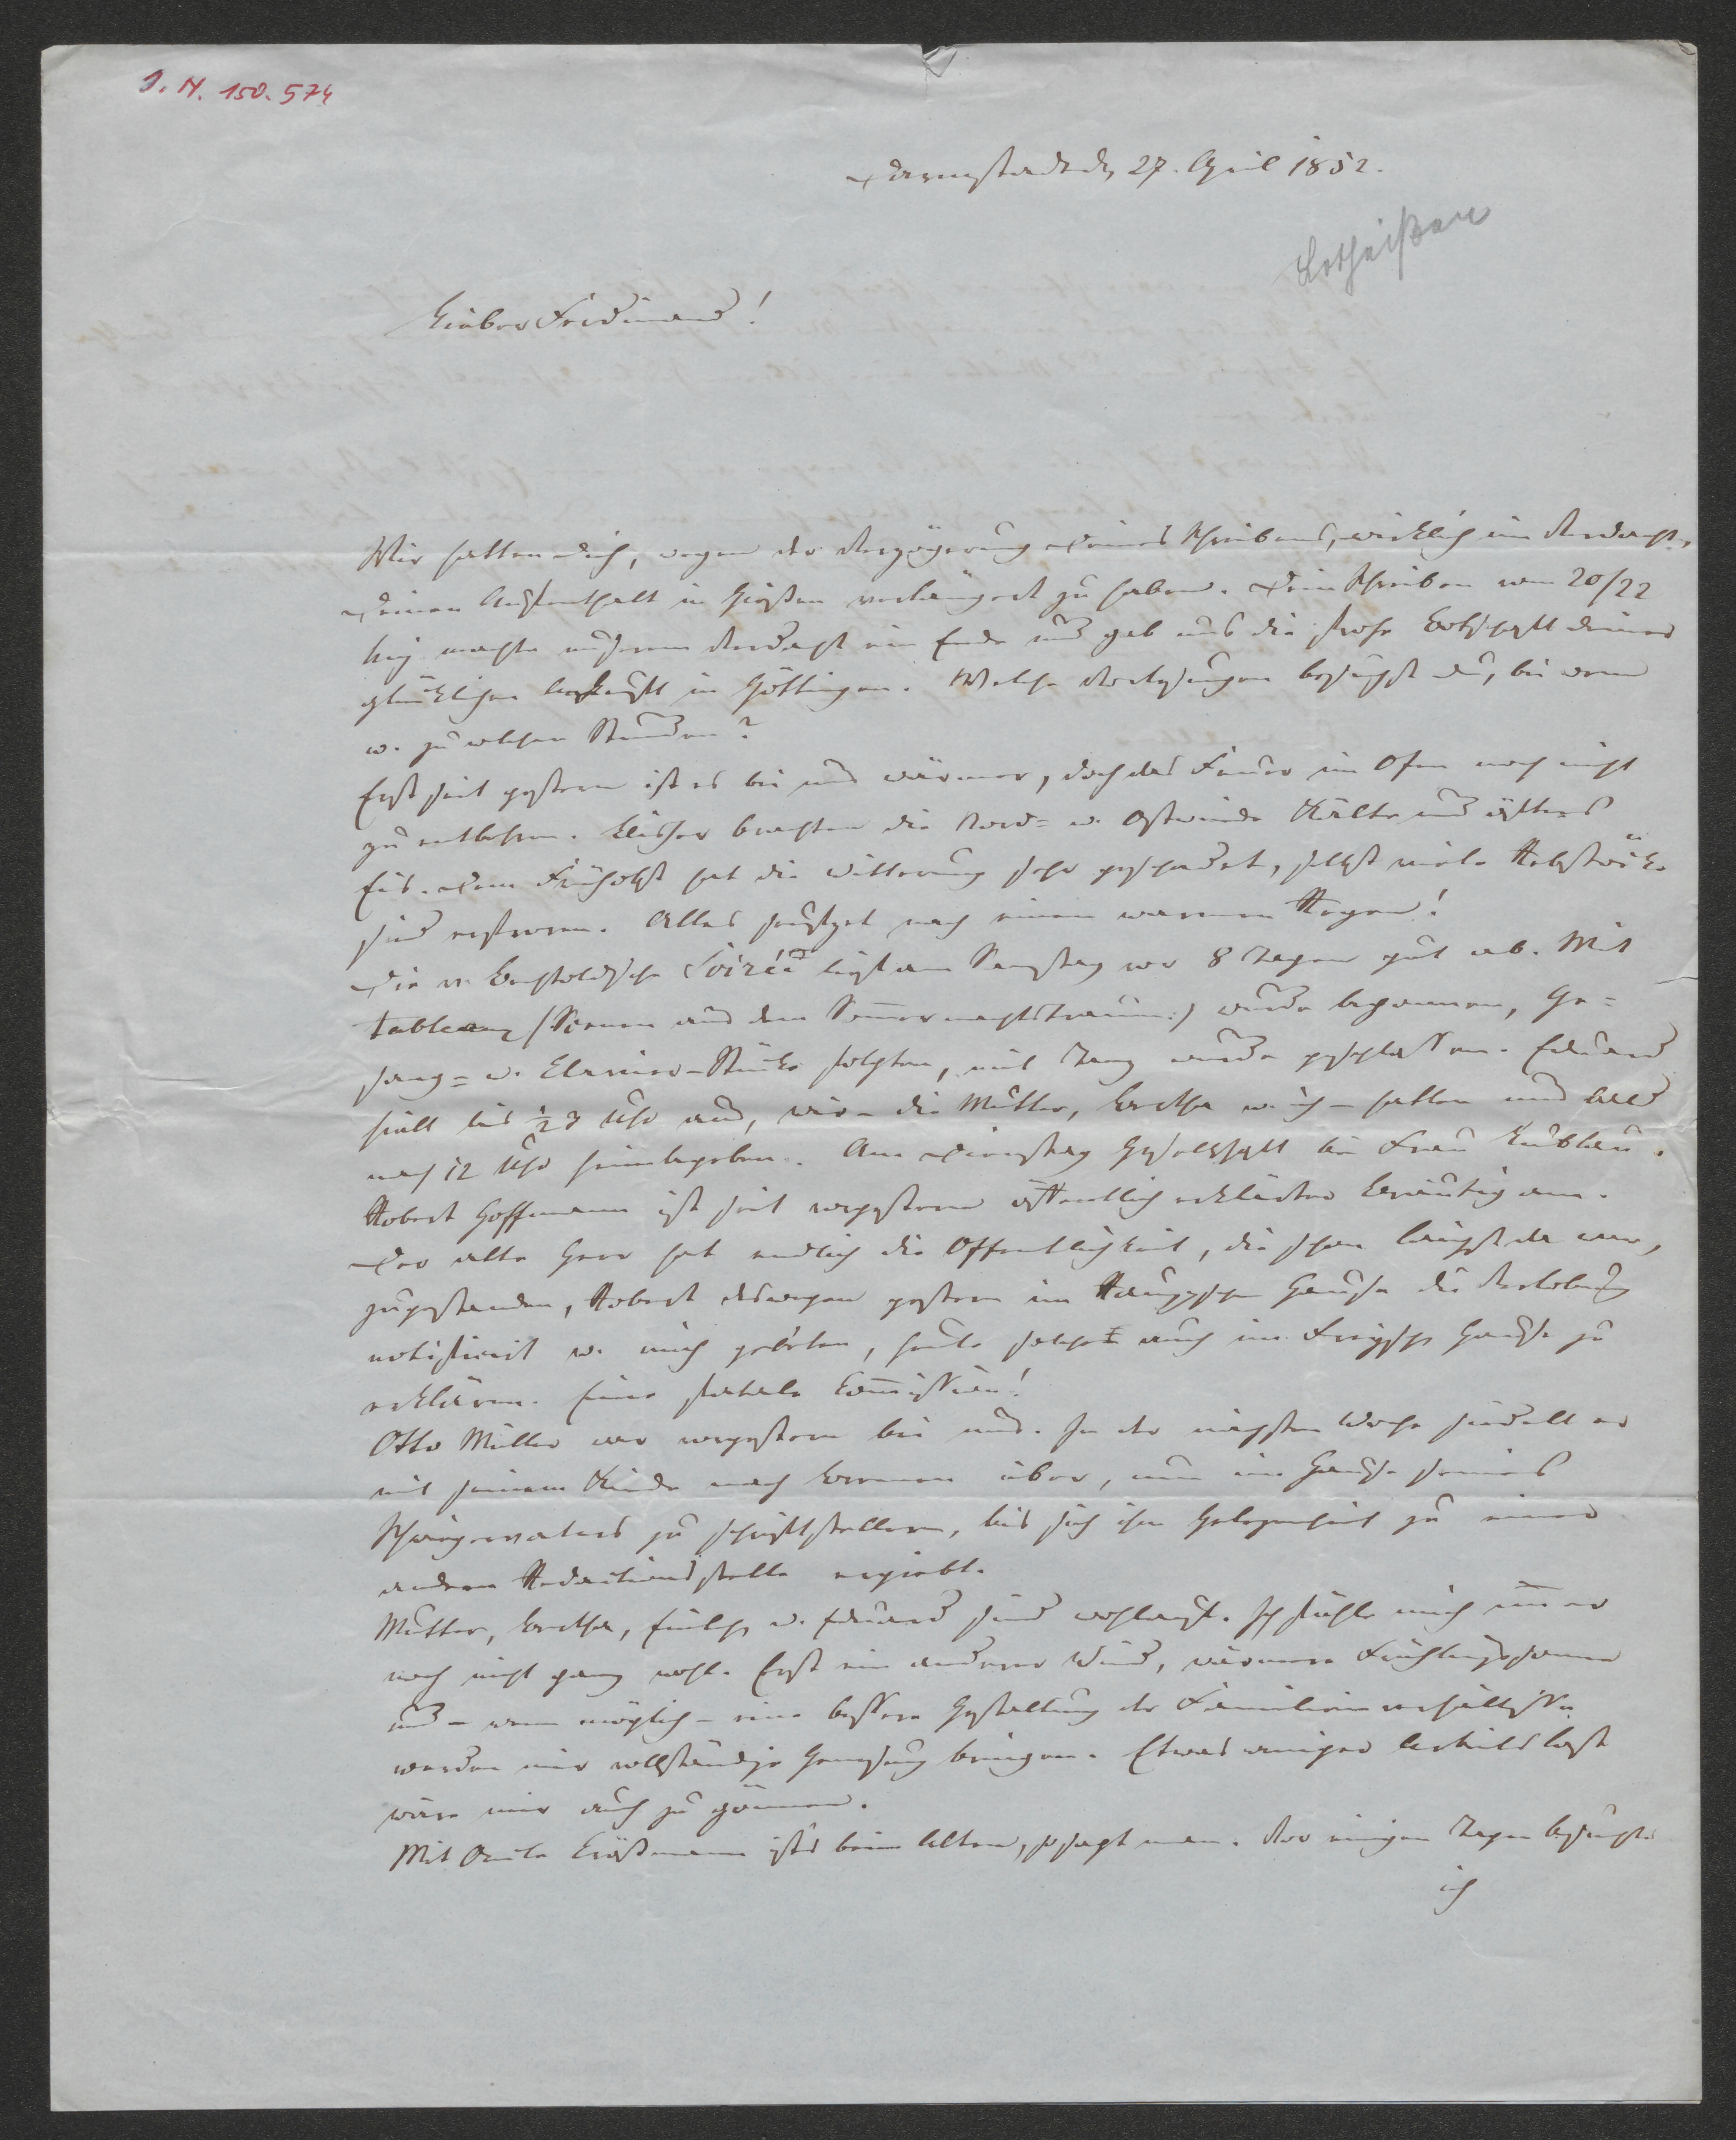 I. N. 150.574
Darmstadt d. 27. April 1852.
Lotheißen
Lieber Ferdinand!
Wir hatten dich, wegen der Verzögerung Deines Schreibens, wirklich im Verdacht,
Deinen Aufenthalt in Gießen verlängert zu haben. Dein Schreiben vom 20/22
machte unserem Verdacht ein Ende und gab uns die frohe Botschaft deiner
glücklichen Ankunft in Göttingen. Welche Vorlesungen besuchst du, bei wem
u. zu welchen Stunden?
Erst seit gestern ist es bei uns wärmer, doch das Feuer im Ofen noch nicht
zu entbehren. Bisher brachten die Nord= u. Ostwinde Kälte und öfters
Eis. Dem Frühobst hat die Witterung sehr geschadet, selbst viele Rebstöcke
sind erfroren. Alles seufzet nach einem warmen Regen!
Die v. Bechtold'sche Soirée lief am Samstag vor 8 Tagen gut ab. Mit
Tableaux (Scenen aus dem Sommernachtstraum) wurde begonnen, Ge=
sang= u. Clavier-Stücke folgten, mit Tanz wurde geschlossen. Eduard
hielt bis ½3 Uhr aus, wir – die Mutter, Bertha u. ich – hatten uns bald
nach 12 Uhr heimbegeben. Am Dienstag Gesellschaft bei Frau
Robert Hoffmann ist seit vorgestern öffentlich erklärter Bräutigam.
Der alte Herr hat endlich die Öffentlichkeit, die schon längst da war,
zugestanden, Robert deswegen gestern im Hause die Verlobung
notificirt u. mich gebeten, heute solche auch im Hause zu
erklären. Eine fatale Commission!
Otto Müller war vorgestern bei uns. In der nächsten Woche siedelt er
mit seinem Kinde nach Bremen über, um im Hause seines
Schwiegervaters zu schriftstellern, bis sich ihm Gelegenheit zu einer
andern Redactionsstelle ergiebt.
Mutter, Bertha, u. Eduard sind wohlauf. Ich fühle mich immer
noch nicht ganz wohl. Erst ein anderer Wind, wärmere Frühlingssonne
und – wenn möglich – eine bessere Gestaltung der Familienverhältnisse
werden mir vollständige Genesung bringen. Etwas weniger Arbeitslast
wäre mir auch zu gönnen.
Mit ist's beim Alten, so sagt man. Vor einigen Tagen besuchte
ich